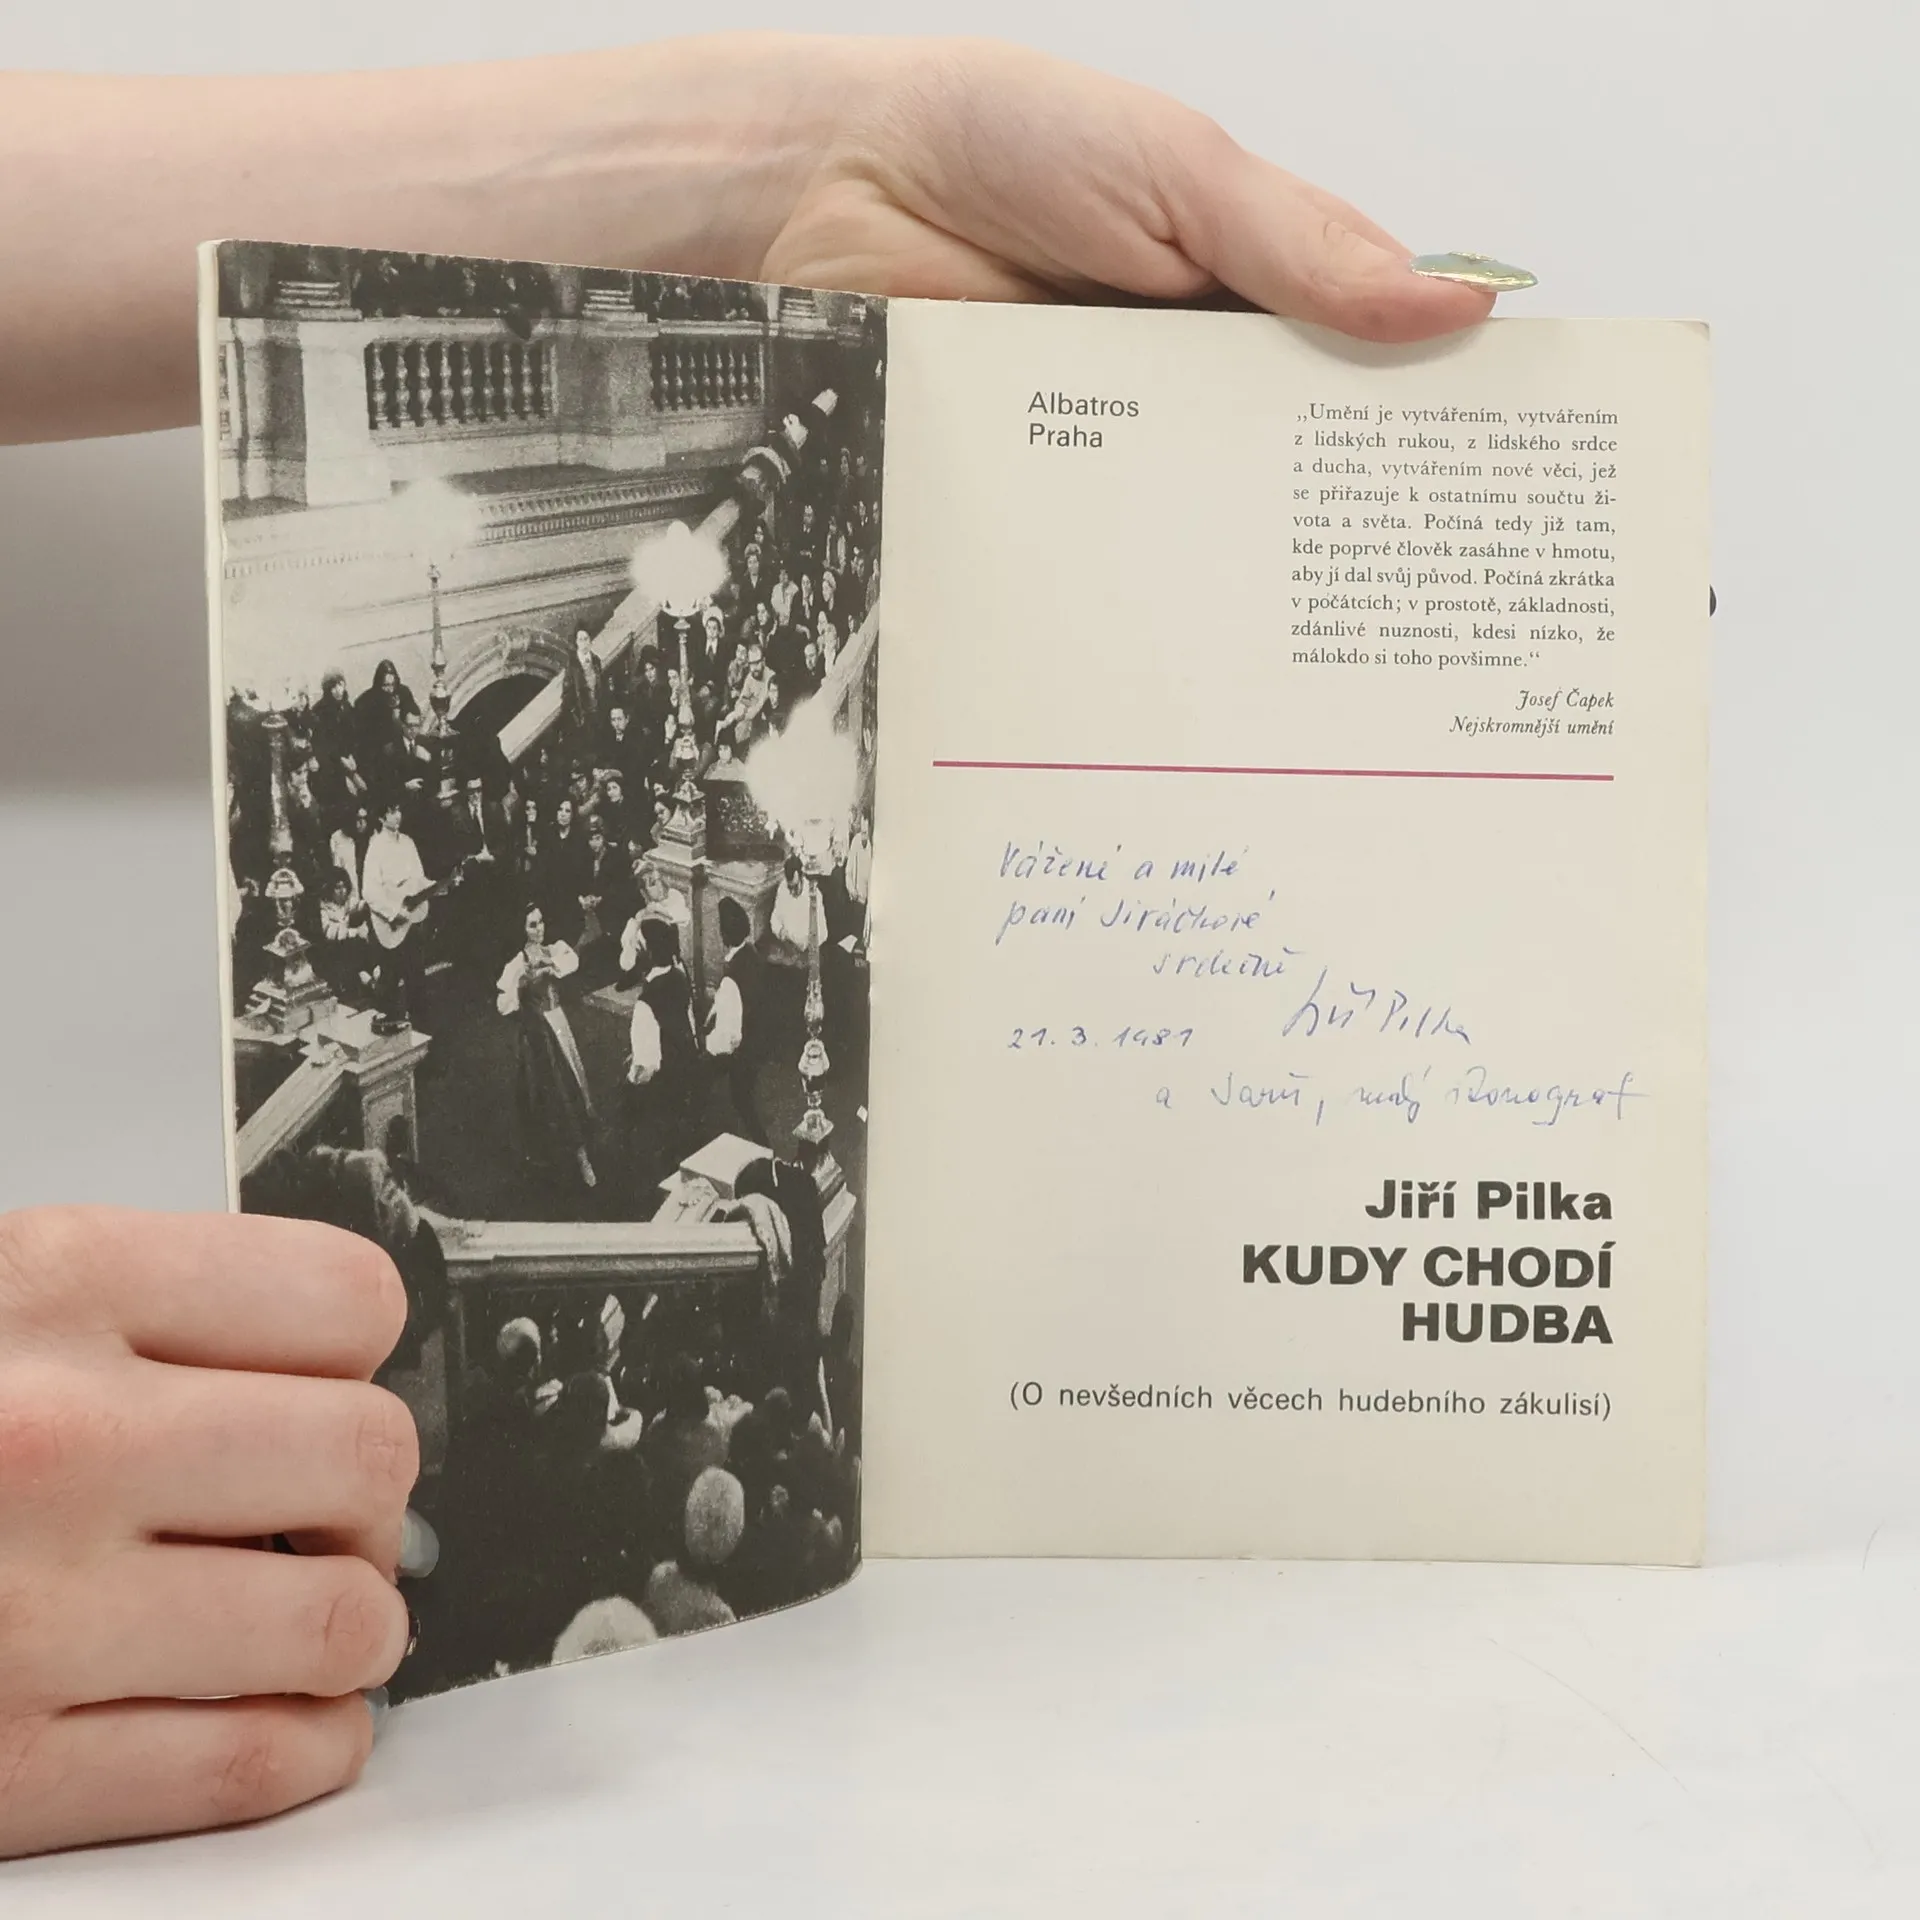 Albatros
Praha
„Umění je vytvářením, vytvářením
z lidských rukou, z lidského srdce
a ducha, vytvářením nové věci, jež
se přiřazuje k ostatnímu součtu ži-
vota a světa. Počíná tedy již tam,
kde poprvé člověk zasáhne v hmotu,
aby jí dal svůj původ. Počíná zkrátka
v počátcích; v prostotě, základnosti,
zdánlivé nuznosti, kdesi nízko, že
málokdo si toho povšimne.“
Josef Čapek
Nejskromnější umění
Vážené a milé
paní Jiráčkové
srdečně
Jiří Pilka
21. 3. 1981
a
Jiří Pilka
KUDY CHODÍ
HUDBA
(O nevšedních věcech hudebního zákulisí)